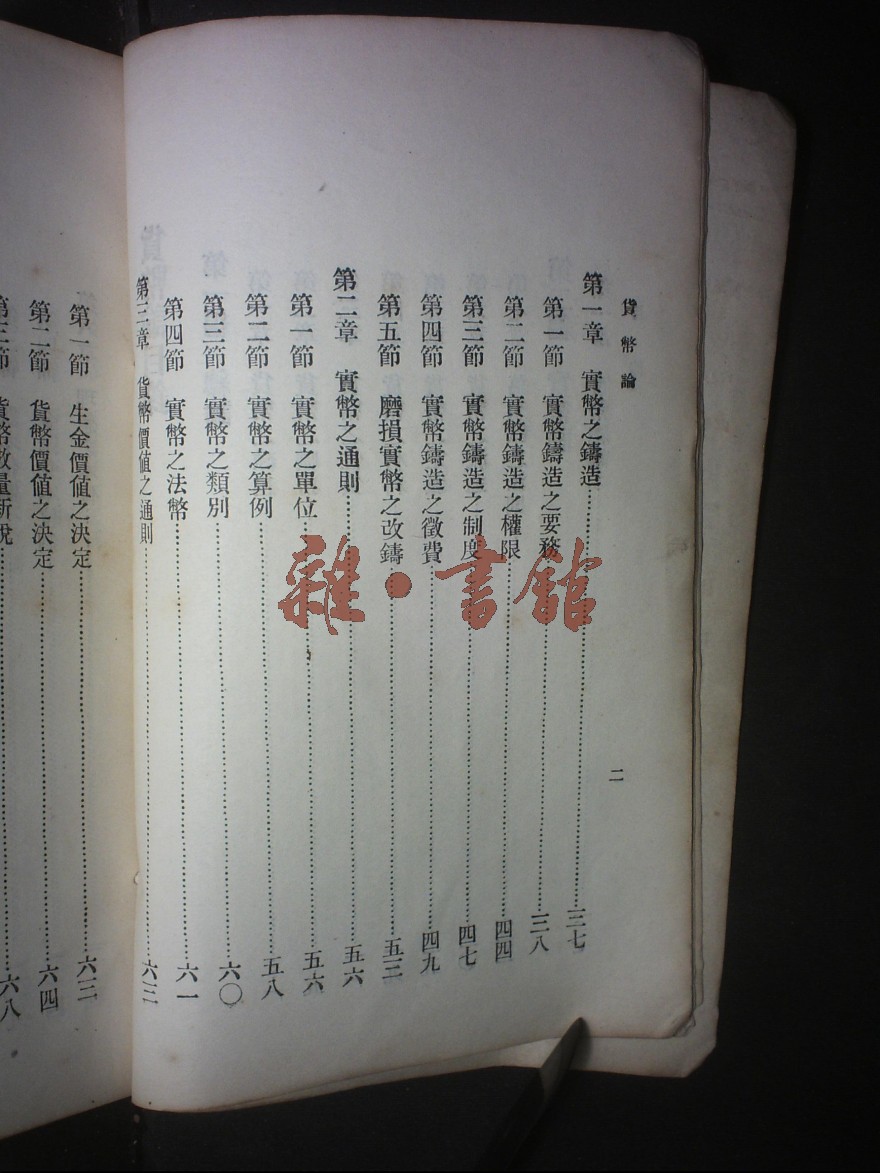 貨幣論
二
第一章 實幣之鑄造……三七
第一節 實幣鑄造之要務……三八
第二節 實幣鑄造之權限……四四
第三節 實幣鑄造之制度……四七
第四節 實幣鑄造之徵費……四九
第五節 磨損實幣之改鑄……五三
第二章 實幣之通則……五六
第一節 實幣之單位……五六
第二節 實幣之算例……五八
第三節 實幣之類別……六〇
第四節 實幣之法幣……六一
第三章 貨幣價值之通則……六三
第一節 生金價值之決定……六三
第二節 貨幣價值之決定……六四
第三節 貨幣數量新說……六八
雜·書館